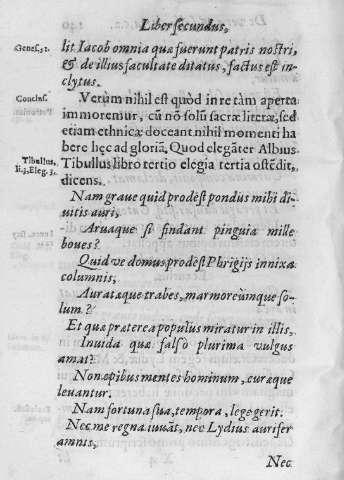 Liber secundus,
Genes. 31.
lit Iacob omnia quæ fuerunt patris nostri,
& de illius facultate ditatus, factus est in-
clytus.
Conclus.
Verùm nihil est quòd in re tàm aperta
immoremur, cũ nõ solũ sacræ literæ, sed
etiam ethnicæ doceant nihil momenti ha
bere hęc ad gloriã, Quod elegãter Albius
Tibullus,
li. 3, Eleg. 3.
Tibullus libro tertio elegia tertia ostẽdit,
dicens.
Nam graue quid prodest pondus mihi di-
uitis auri,
Aruaque si findant pinguia mille
boues?
Quid ve domus prodest Phrigijs innixa
columnis,
Aurataque trabes, marmoreùmque so-
lum?
Et quæ præterea populus miratur in illis,
Inuida quæ falso plurima vulgus
amat?
Non opibus mentes hominum, curæque
leuantur.
Nam fortuna sua, tempora, lege gerit.
Nec me regna iuuãt, nec Lydius aurifer
amnis,
Nec